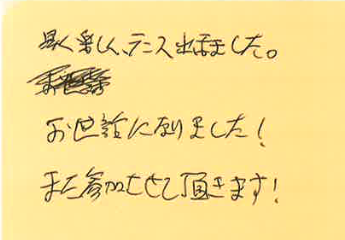 楽しく、テニス出来ました。
お世話になりました!
また参加させて頂きます!